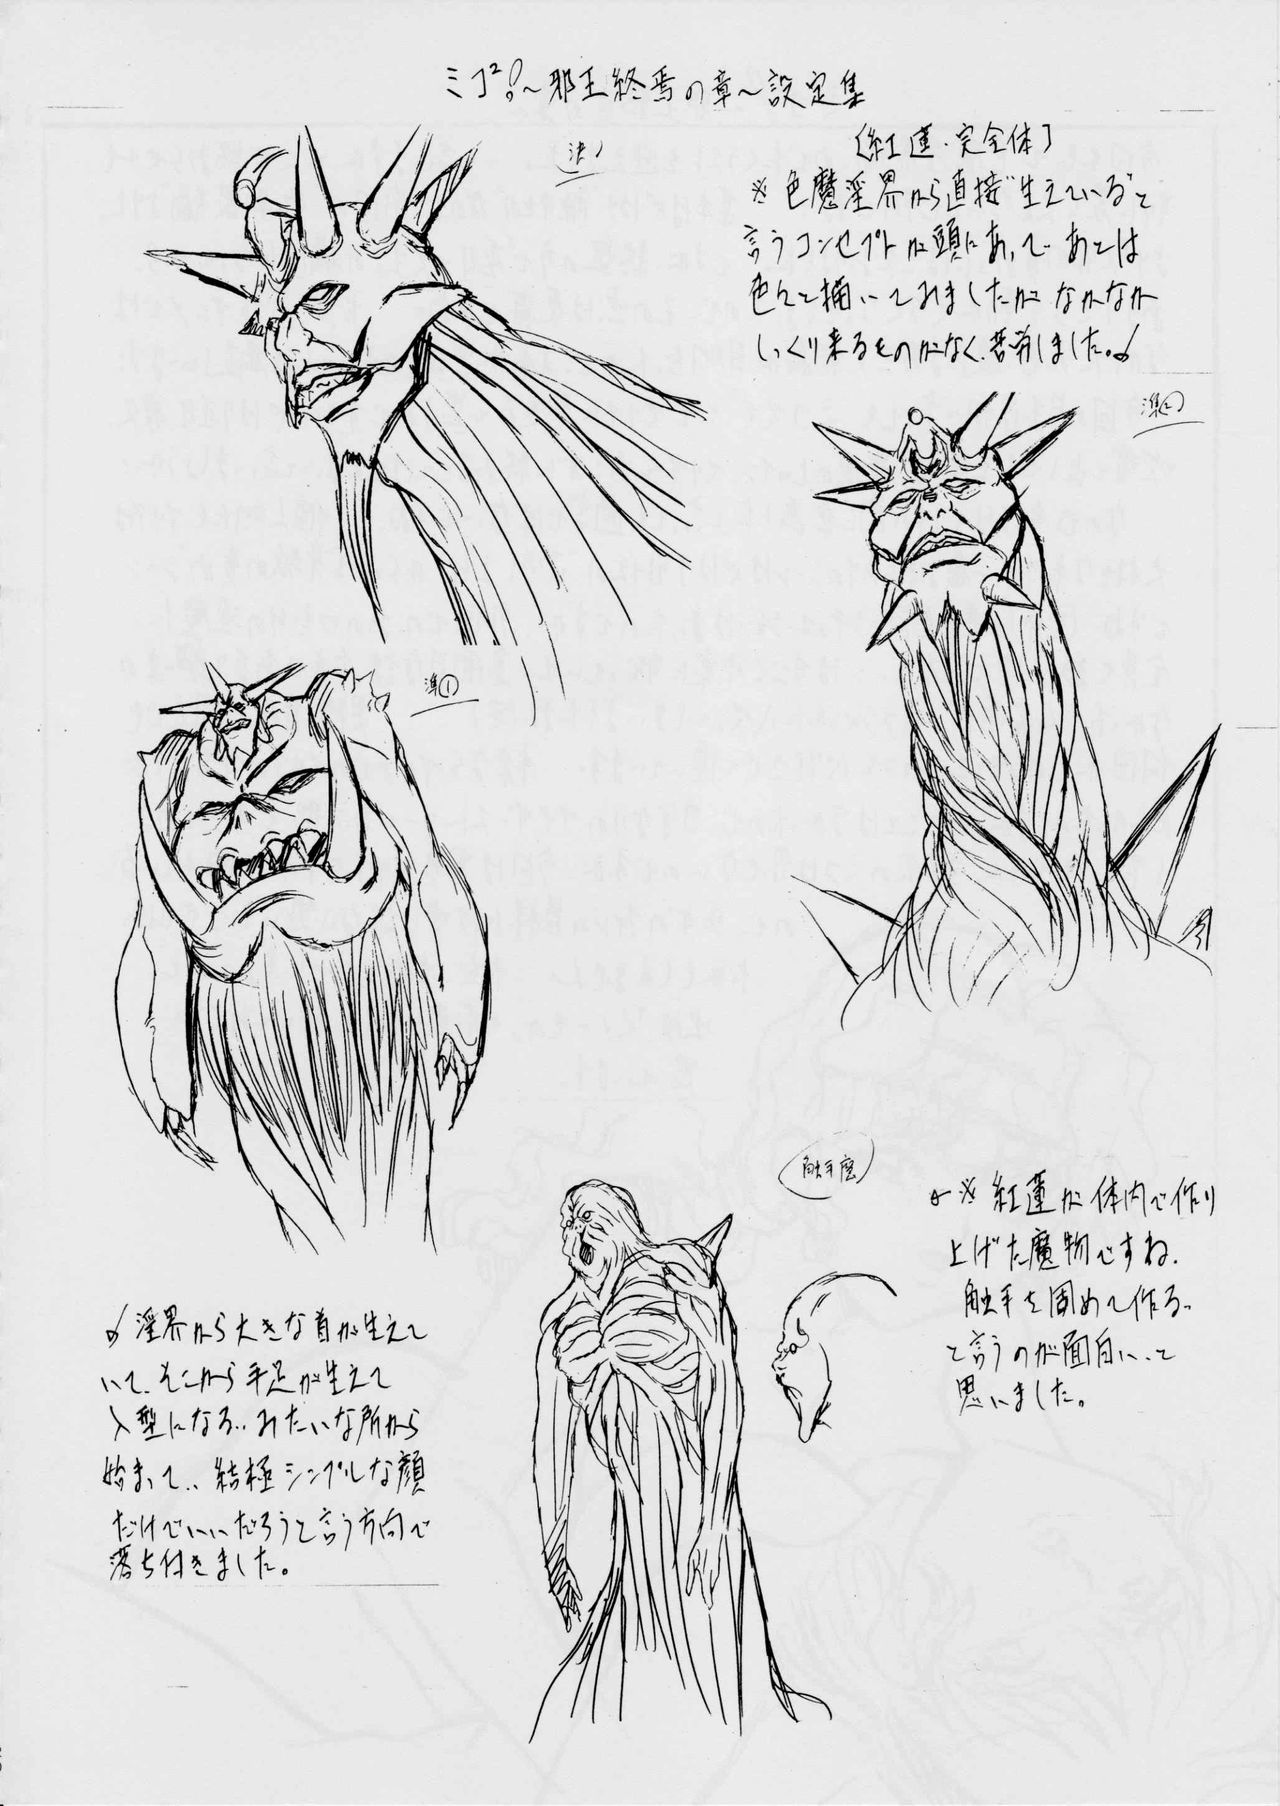 ミコ²!〜邪王終焉の章〜設定集
決!
〔紅蓮・完全体〕
※色魔淫界から直接"生えている"と
言うコンセプトが頭にあって、あとは
色んて描いてみましたが なかなか
しっくり来るものがなく、苦労しました。
準②
準①
触手魔
※紅蓮が体内で作り
上げた魔物ですね、
触手を固めて作る..
と言うのが面白い..と
思いました。
淫界から大きな首が生えて
いて、そこから手足が生えて
人型になる..みたいな所から
始まって.. 結極シンプルな顔
だけでいいだろうと言う方向で
落ち付きました。